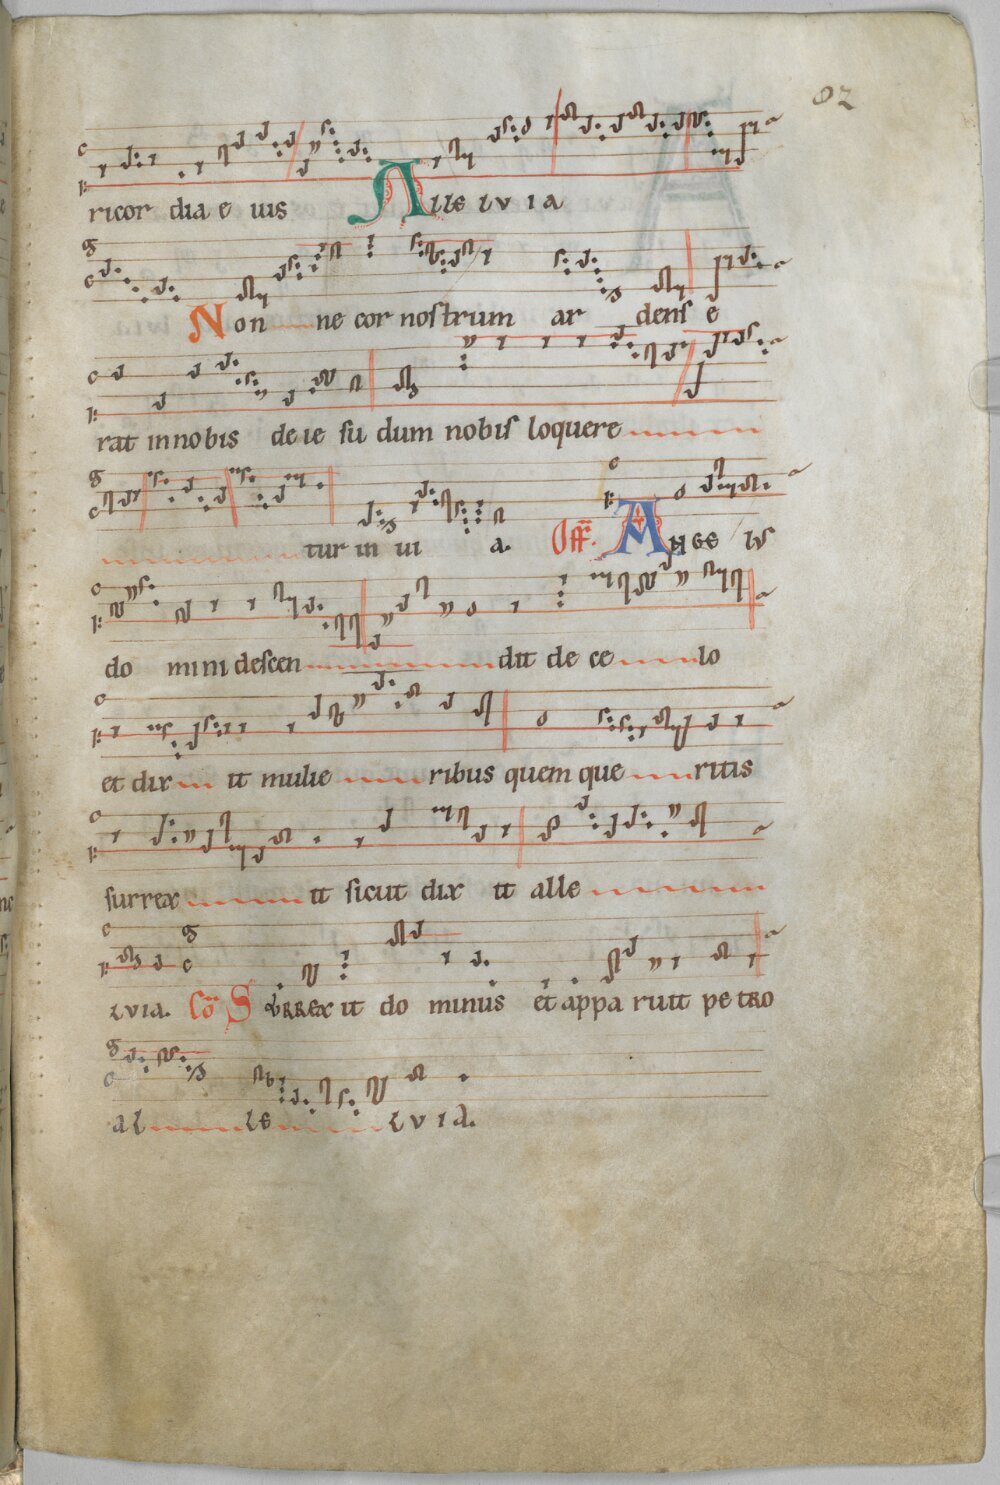 82
ricor dia e uis Alle lv ia
Non ne cor noſtrum ar denſ e
rat in nobis de ie ſu dum nobiſ loquere
tur in ui a. Off. Ange lvs
do mini deſcen dit de ce lo
et dix it mulie ribus quem que ritis
ſurrex it ſicut dix it alle
lvia. Co Surrex it do minus et appa ruit petro
al le lvia.